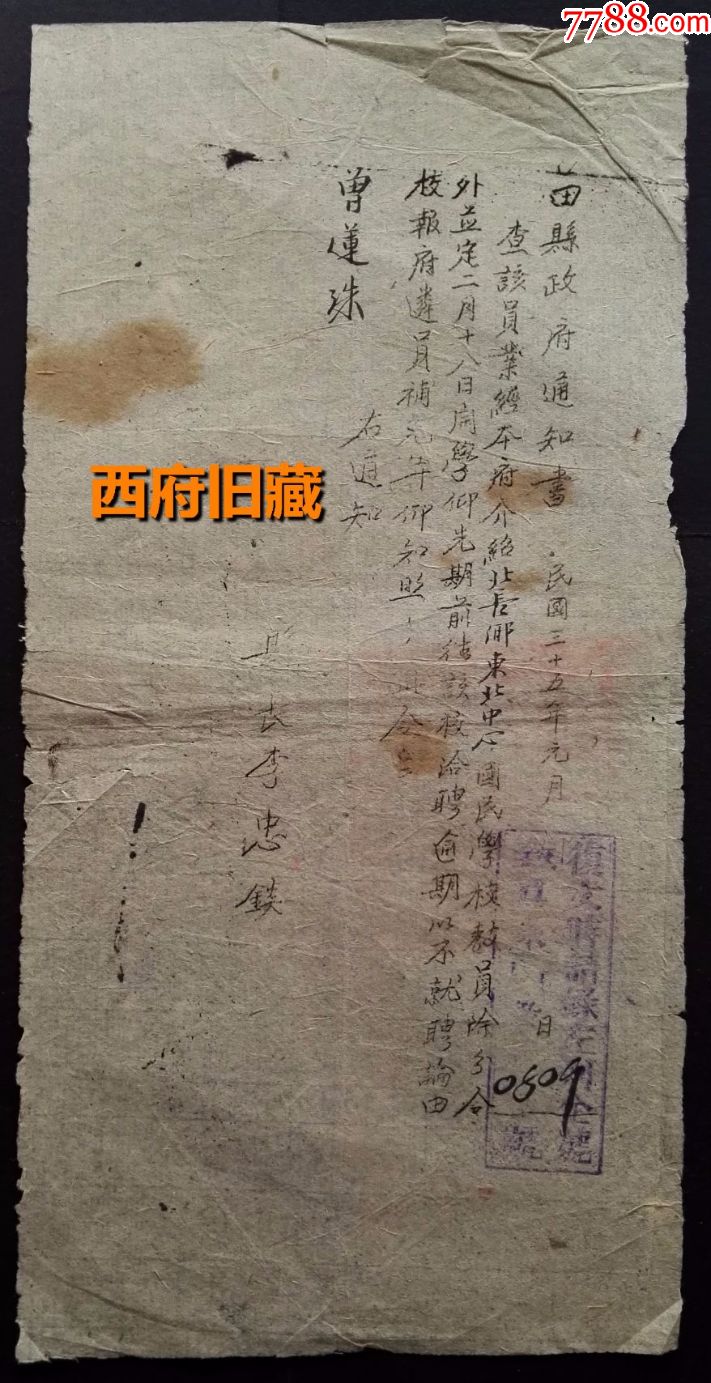 7788.com
苗縣政府通知書 民國三十五年元月 日
查該員業經本府介紹北長鄉東北中心國民學校教員除分令
外並定二月十八日開學仰先期前往該校洽聘逾期以不就聘論由
校報府遴員補充등仰知照 此令
右通知
曾蓮珠
縣長李忠
0809
號
西府旧藏